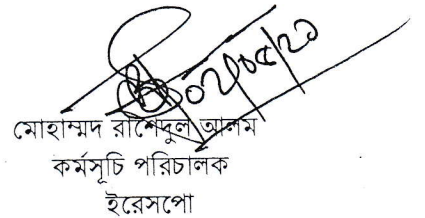 ০২/০৫/২১
মোহাম্মদ রাশেদুল আলম
কর্মসূচি পরিচালক
ইরেসপো